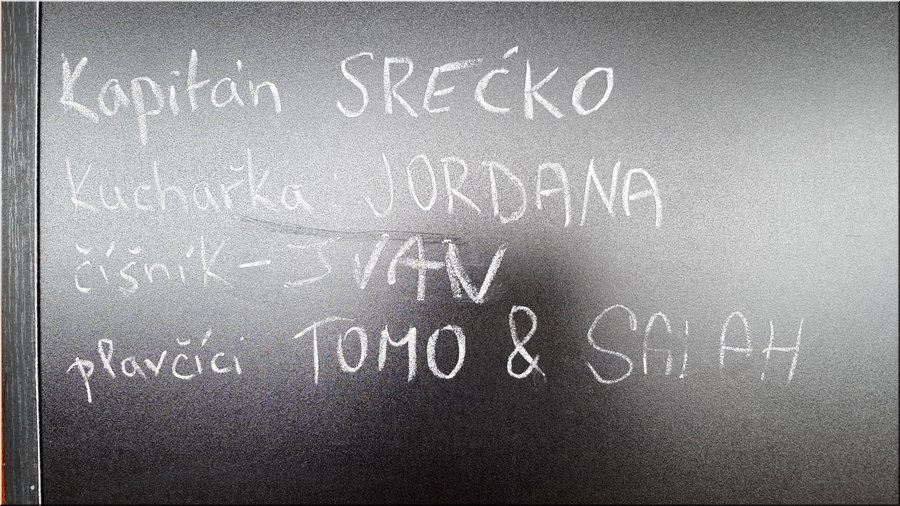 Kapitán SREĆKO
Kuchařka: JORDANA
číšník - IVAN
plavčíci TOMO & SALAH